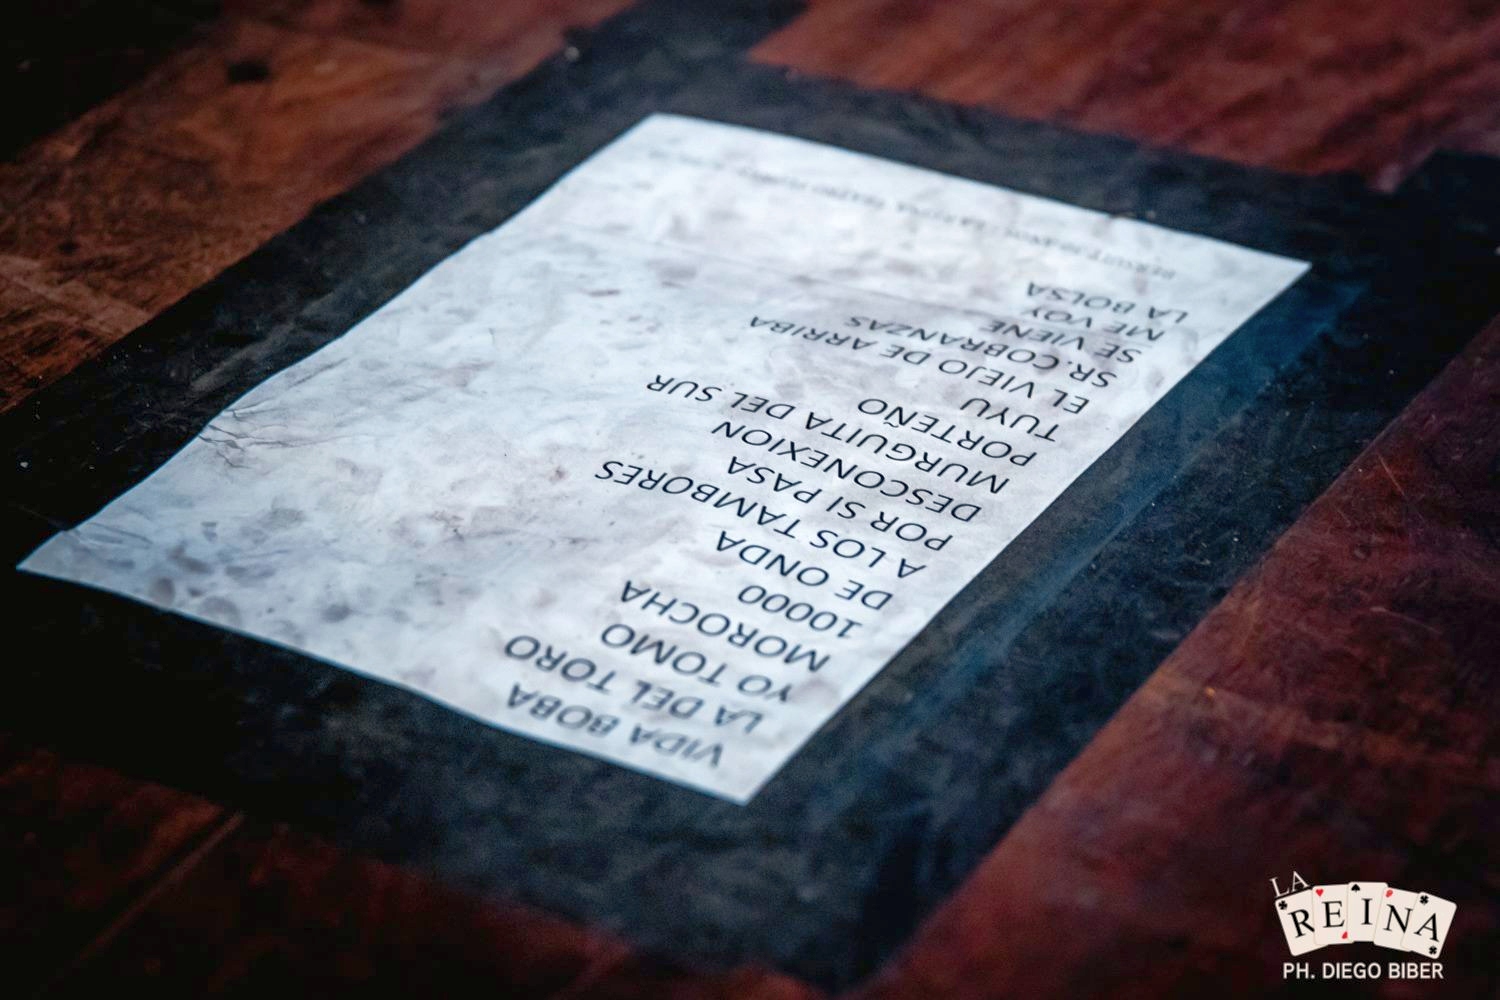 VIDA BOBA
LA DEL TORO
YO TOMO
MOROCHA
10000
DE ONDA
A LOS TAMBORES
POR SI PASA
DESCONEXION
MURGUITA DEL SUR
PORTEÑO
TUYU
EL VIEJO DE ARRIBA
SR.COBRANZAS
SE VIENE
ME VOY
LA BOLSA
BERSUIT
LA
REINA
PH. DIEGO BIBER